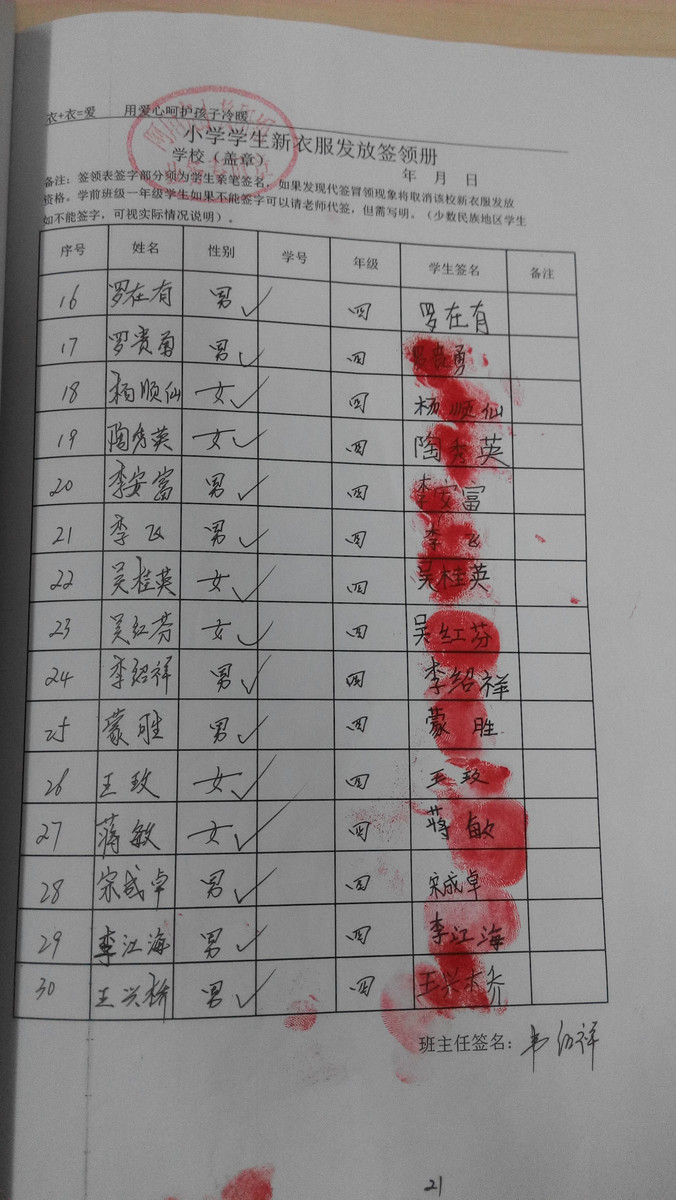 衣+衣=爱 用爱心呵护孩子冷暖
小学学生新衣服发放签领册
学校（盖章） 年 月 日
备注：签领表签字部分须为学生亲笔签名，如果发现代签冒领现象将取消该校新衣服发放
资格，学前班级一年级学生如果不能签字可以请老师代签，但需写明。（少数民族地区学生
如不能签字，可视实际情况说明）。
序号 姓名 性别 学号 年级 学生签名 备注
16 罗在有 男✓ 四 罗在有
17 罗贵勇 男✓ 四 罗贵勇
18 杨顺仙 女✓ 四 杨顺仙
19 陶秀英 女✓ 四 陶秀英
20 李安富 男✓ 四 李安富
21 李飞 男✓ 四 李飞
22 吴桂英 女✓ 四 吴桂英
23 吴红芬 女✓ 四 吴红芬
24 李绍祥 男✓ 四 李绍祥
25 蒙胜 男✓ 四 蒙胜
26 王玫 女✓ 四 王玫
27 蒋敏 女✓ 四 蒋敏
28 宋成卓 男✓ 四 宋成卓
29 李江海 男✓ 四 李江海
30 王兴桥 男✓ 四 王兴桥
班主任签名：韦绍祥
21